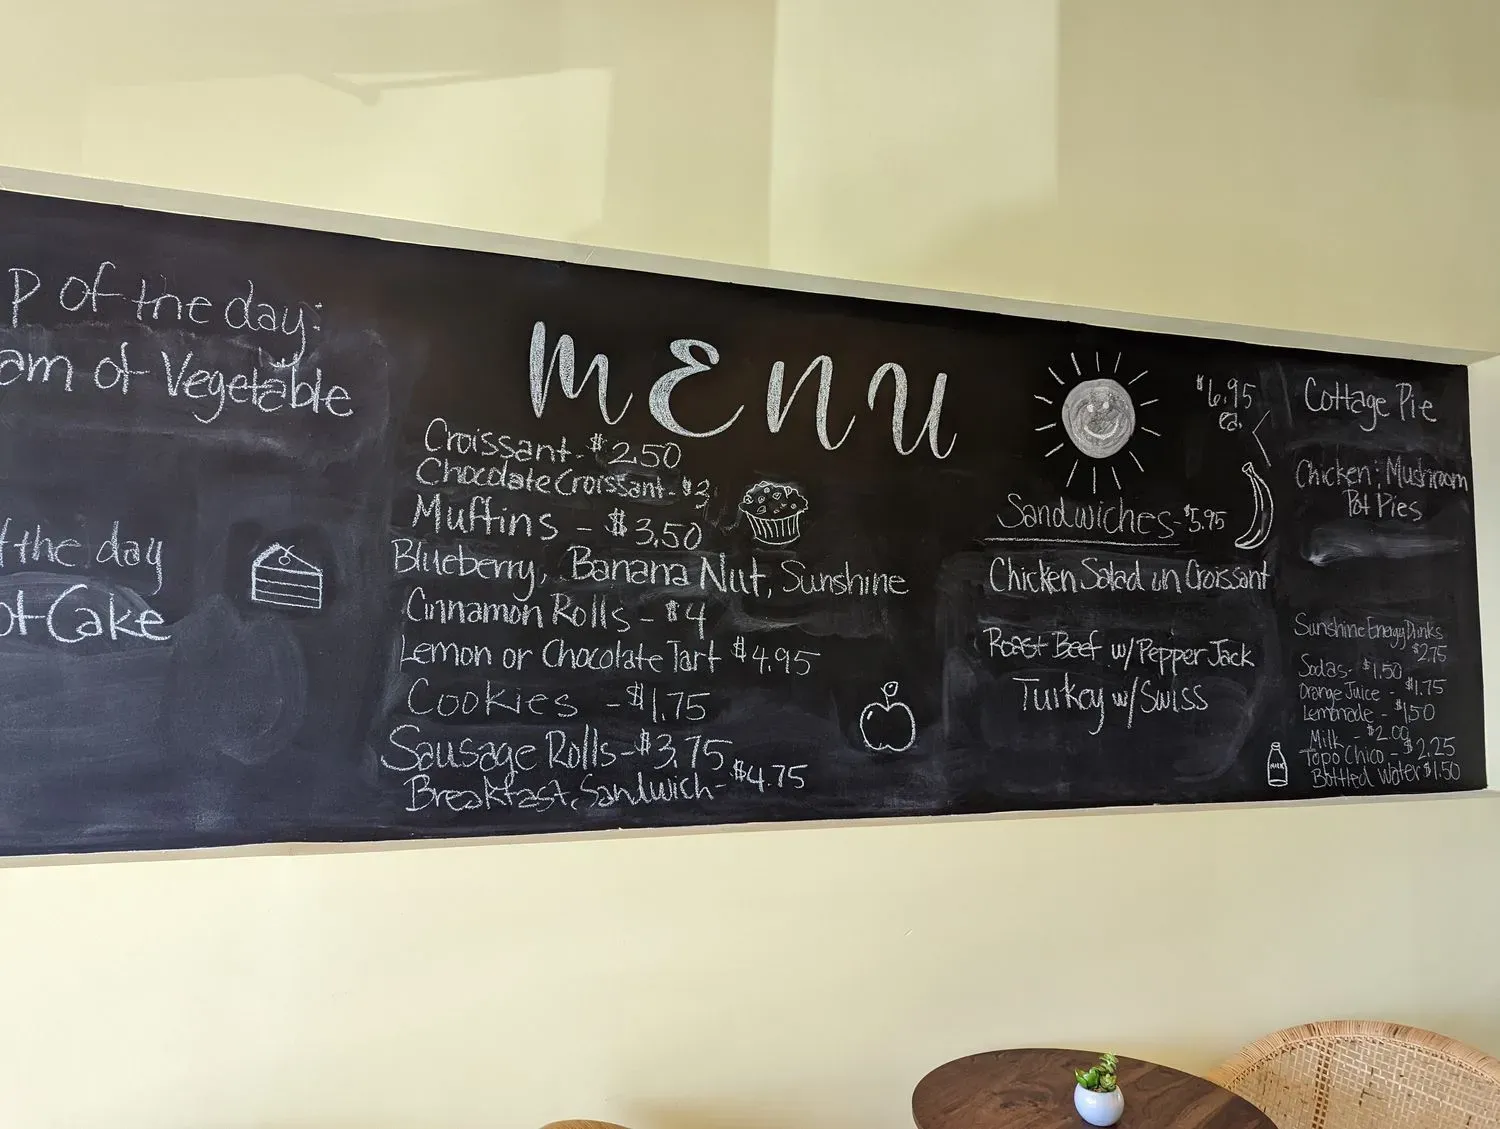 P of the day:
am of Vegetable
the day
ot Cake
MENU
Croissant - $2.50
Chocolate Croissant - $3
Muffins - $3.50
Blueberry, Banana Nut, Sunshine
Cinnamon Rolls - $4
Lemon or Chocolate Tart $4.95
Cookies - $1.75
Sausage Rolls - $3.75
Breakfast Sandwich - $4.75
Sandwiches - $5.95
Chicken Salad on Croissant
Roast Beef w/ Pepper Jack
Turkey w/ Swiss
$6.95
ea.
Cottage Pie
Chicken & Mushroom
Pot Pies
Sunshine Energy Drinks
$2.75
Sodas - $1.50
Orange Juice - $1.75
Lemonade - $1.50
Milk - $2.00
Topo Chico - $2.25
Bottled Water $1.50
MILK